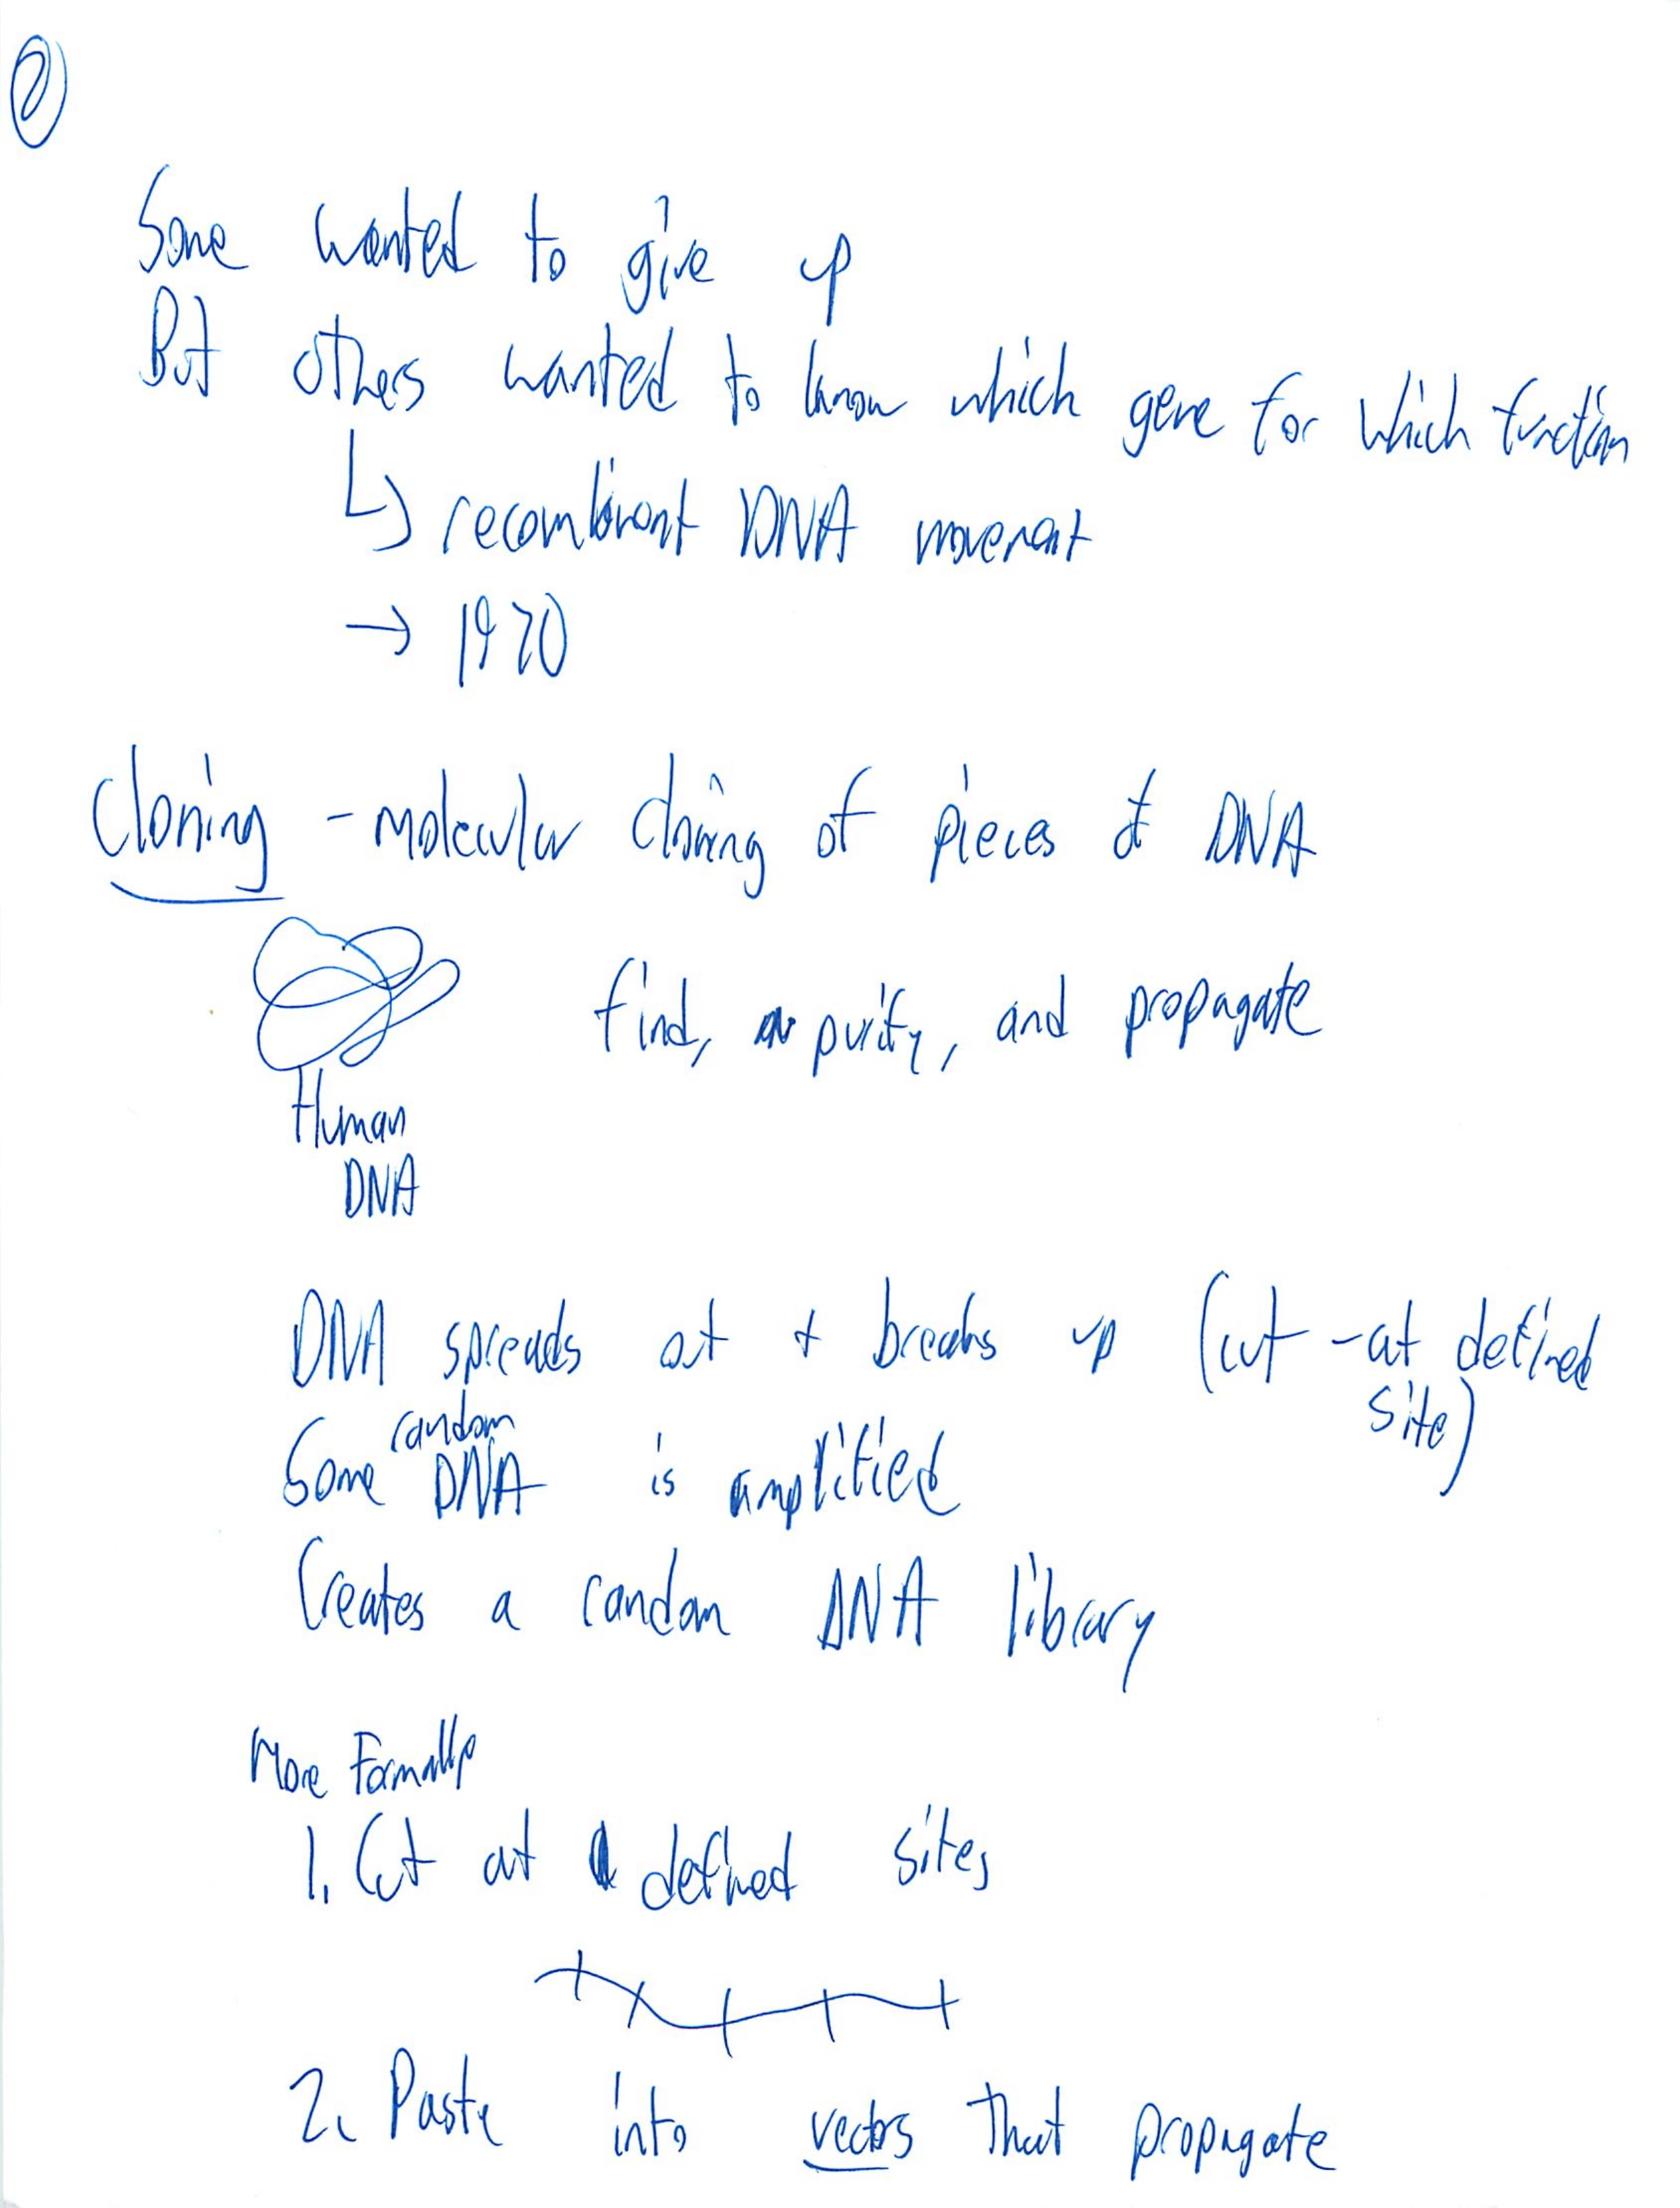 ②
Some wanted to give up
But others wanted to know which gene for which function
↳ recombinant DNA movement
→ 1970
Cloning - molecular cloning of pieces of DNA
find, purify, and propagate
Human
DNA
DNA spreads out + breaks up (cut - at defined
site)
random
Some DNA is amplified
Creates a random DNA library
More Formally
1. Cut at defined sites
2. Paste into vectors that propagate